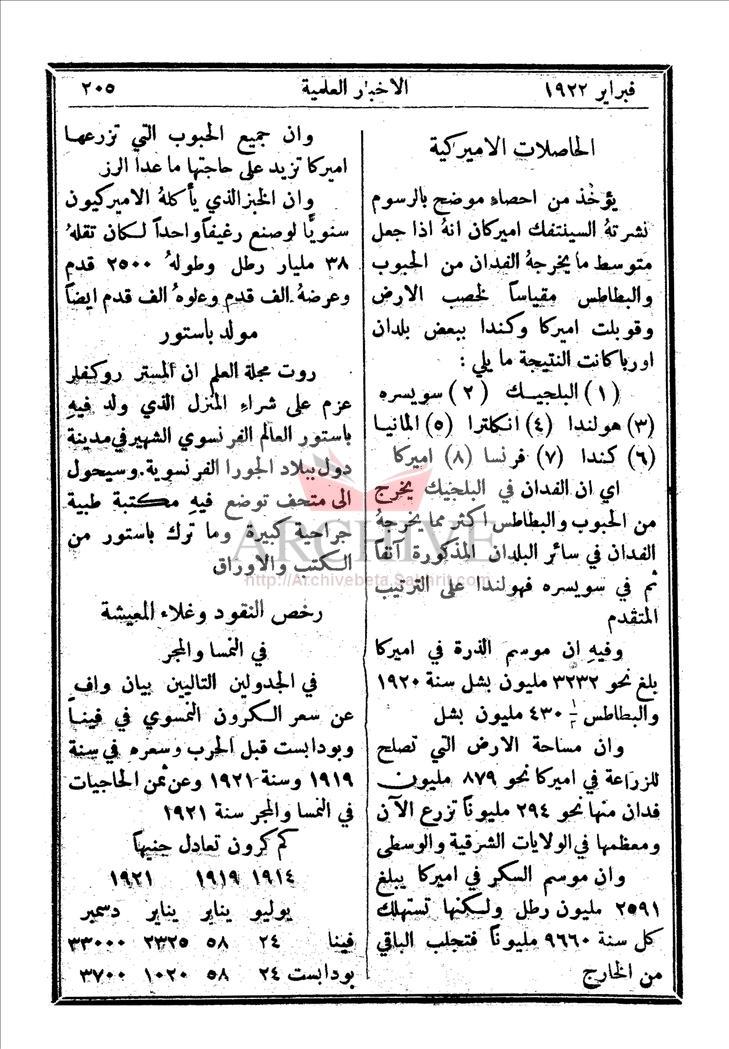 فبراير ١٩٢٢ الاخبار العلمية ٢٠٥
الحاصلات الاميركية
يؤخذ من احصاء موضح بالرسوم
نشرتهُ السينتفك اميركان انهُ اذا جعل
متوسط ما يخرجهُ الفدان من الحبوب
والبطاطس مقياساً لخصب الارض
وقوبلت اميركا وكندا ببعض بلدان
اورباكانت النتيجة ما يلي :
(١) البلجيك (٢) سويسره
(٣) هولندا (٤) انكلترا (٥) المانيا
(٦) كندا (٧) فرنسا (٨) اميركا
اي ان الفدان في البلجيك يخرج
من الحبوب والبطاطس اكثر مما يخرجهُ
الفدان في سائر البلدان المذكورة آنفاً
ثم في سويسره فهولندا على الترتيب
المتقدم
وفيهِ ان موسم الذرة في اميركا
بلغ نحو ٣٢٣٢ مليون بشل سنة ١٩٢٠
والبطاطس ٤٣٠ مليون بشل
وان مساحة الارض التي تصلح
للزراعة في اميركا نحو ٨٧٩ مليون
فدان منها نحو ٢٩٤ مليوناً تزرع الآن
ومعظمها في الولايات الشرقية والوسطى
وان موسم السكر في اميركا يبلغ
٢٥٩١ مليون رطل ولكنها تستهلك
كل سنة ٩٦٦٠ مليوناً فتجلب الباقي
من الخارج
وان جميع الحبوب التي تزرعها
اميركا تزيد على حاجتها ما عدا الرز
وان الخبز الذي يأكلهُ الاميركيون
سنويًّا لوصنع رغيفاً واحداً لكان ثقلهُ
٣٨ مليار رطل وطولهُ ٢٥٠٠ قدم
وعرضهُ الف قدم وعلوهُ الف قدم ايضاً
مولد باستور
روت مجلة العلم ان المستر روكفلر
عزم على شراء المنزل الذي ولد فيهِ
باستور العالم الفرنسوي الشهير في مدينة
دول ببلاد الجورا الفرنسوية وسيحول
الى متحف توضع فيهِ مكتبة طبية
جراحية كبيرة وما ترك باستور من
الكتب والاوراق
رخص النقود وغلاء المعيشة
في النمسا والمجر
في الجدولين التاليين بيان وافٍ
عن سعر الكرون النمسوي في فينا
وبودابست قبل الحرب وسعره في سنة
١٩١٩ وسنة ١٩٢١ وعن ثمن الحاجيات
في النمسا والمجر سنة ١٩٢١
كم كرون تعادل جنيهاً
١٩١٤ ١٩١٩ ١٩٢١
يوليو يناير يناير دسمبر
فينا ٢٤ ٥٨ ٢٣٢٥ ٣٣٠٠٠
بودابست ٢٤ ٥٨ ١٠٢٠ ٣٧٠٠
ARCHIVE
http://Archivebeta.Sakhrit.com